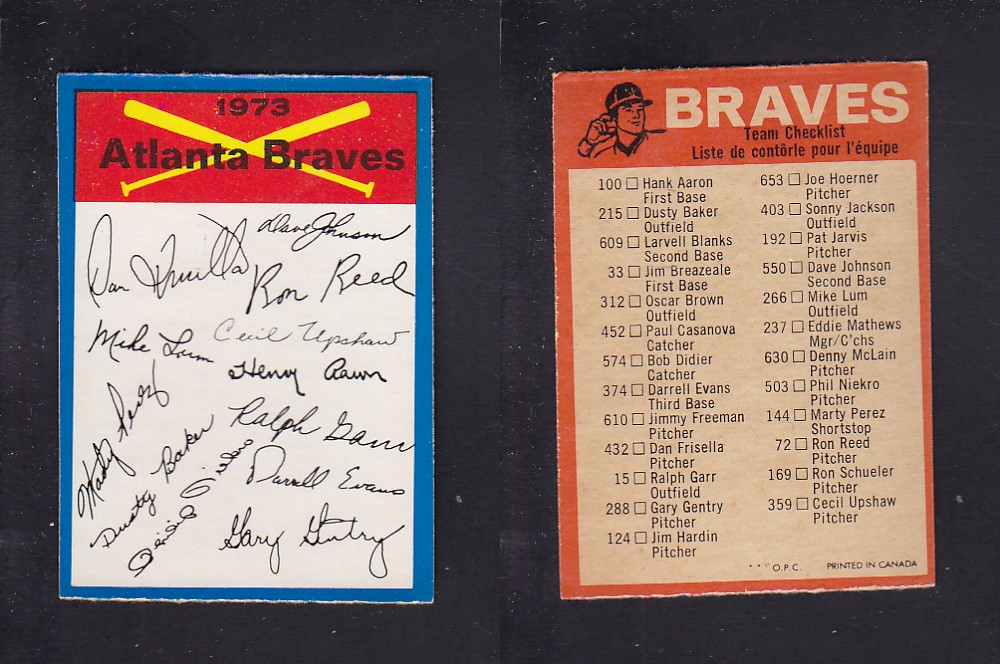 1973
Atlanta Braves
Dave Johnson
Dan Frisella
Ron Reed
Mike Lum
Cecil Upshaw
Henry Aaron
Marty Perez
Ralph Garr
Dusty Baker
Darrell Evans
Gary Gentry
BRAVES
Team Checklist
Liste de contôrle pour l'équipe
100 Hank Aaron
First Base
215 Dusty Baker
Outfield
609 Larvell Blanks
Second Base
33 Jim Breazeale
First Base
312 Oscar Brown
Outfield
452 Paul Casanova
Catcher
574 Bob Didier
Catcher
374 Darrell Evans
Third Base
610 Jimmy Freeman
Pitcher
432 Dan Frisella
Pitcher
15 Ralph Garr
Outfield
288 Gary Gentry
Pitcher
124 Jim Hardin
Pitcher
653 Joe Hoerner
Pitcher
403 Sonny Jackson
Outfield
192 Pat Jarvis
Pitcher
550 Dave Johnson
Second Base
266 Mike Lum
Outfield
237 Eddie Mathews
Mgr/C'chs
630 Denny McLain
Pitcher
503 Phil Niekro
Pitcher
144 Marty Perez
Shortstop
72 Ron Reed
Pitcher
169 Ron Schueler
Pitcher
359 Cecil Upshaw
Pitcher
O.P.C. PRINTED IN CANADA